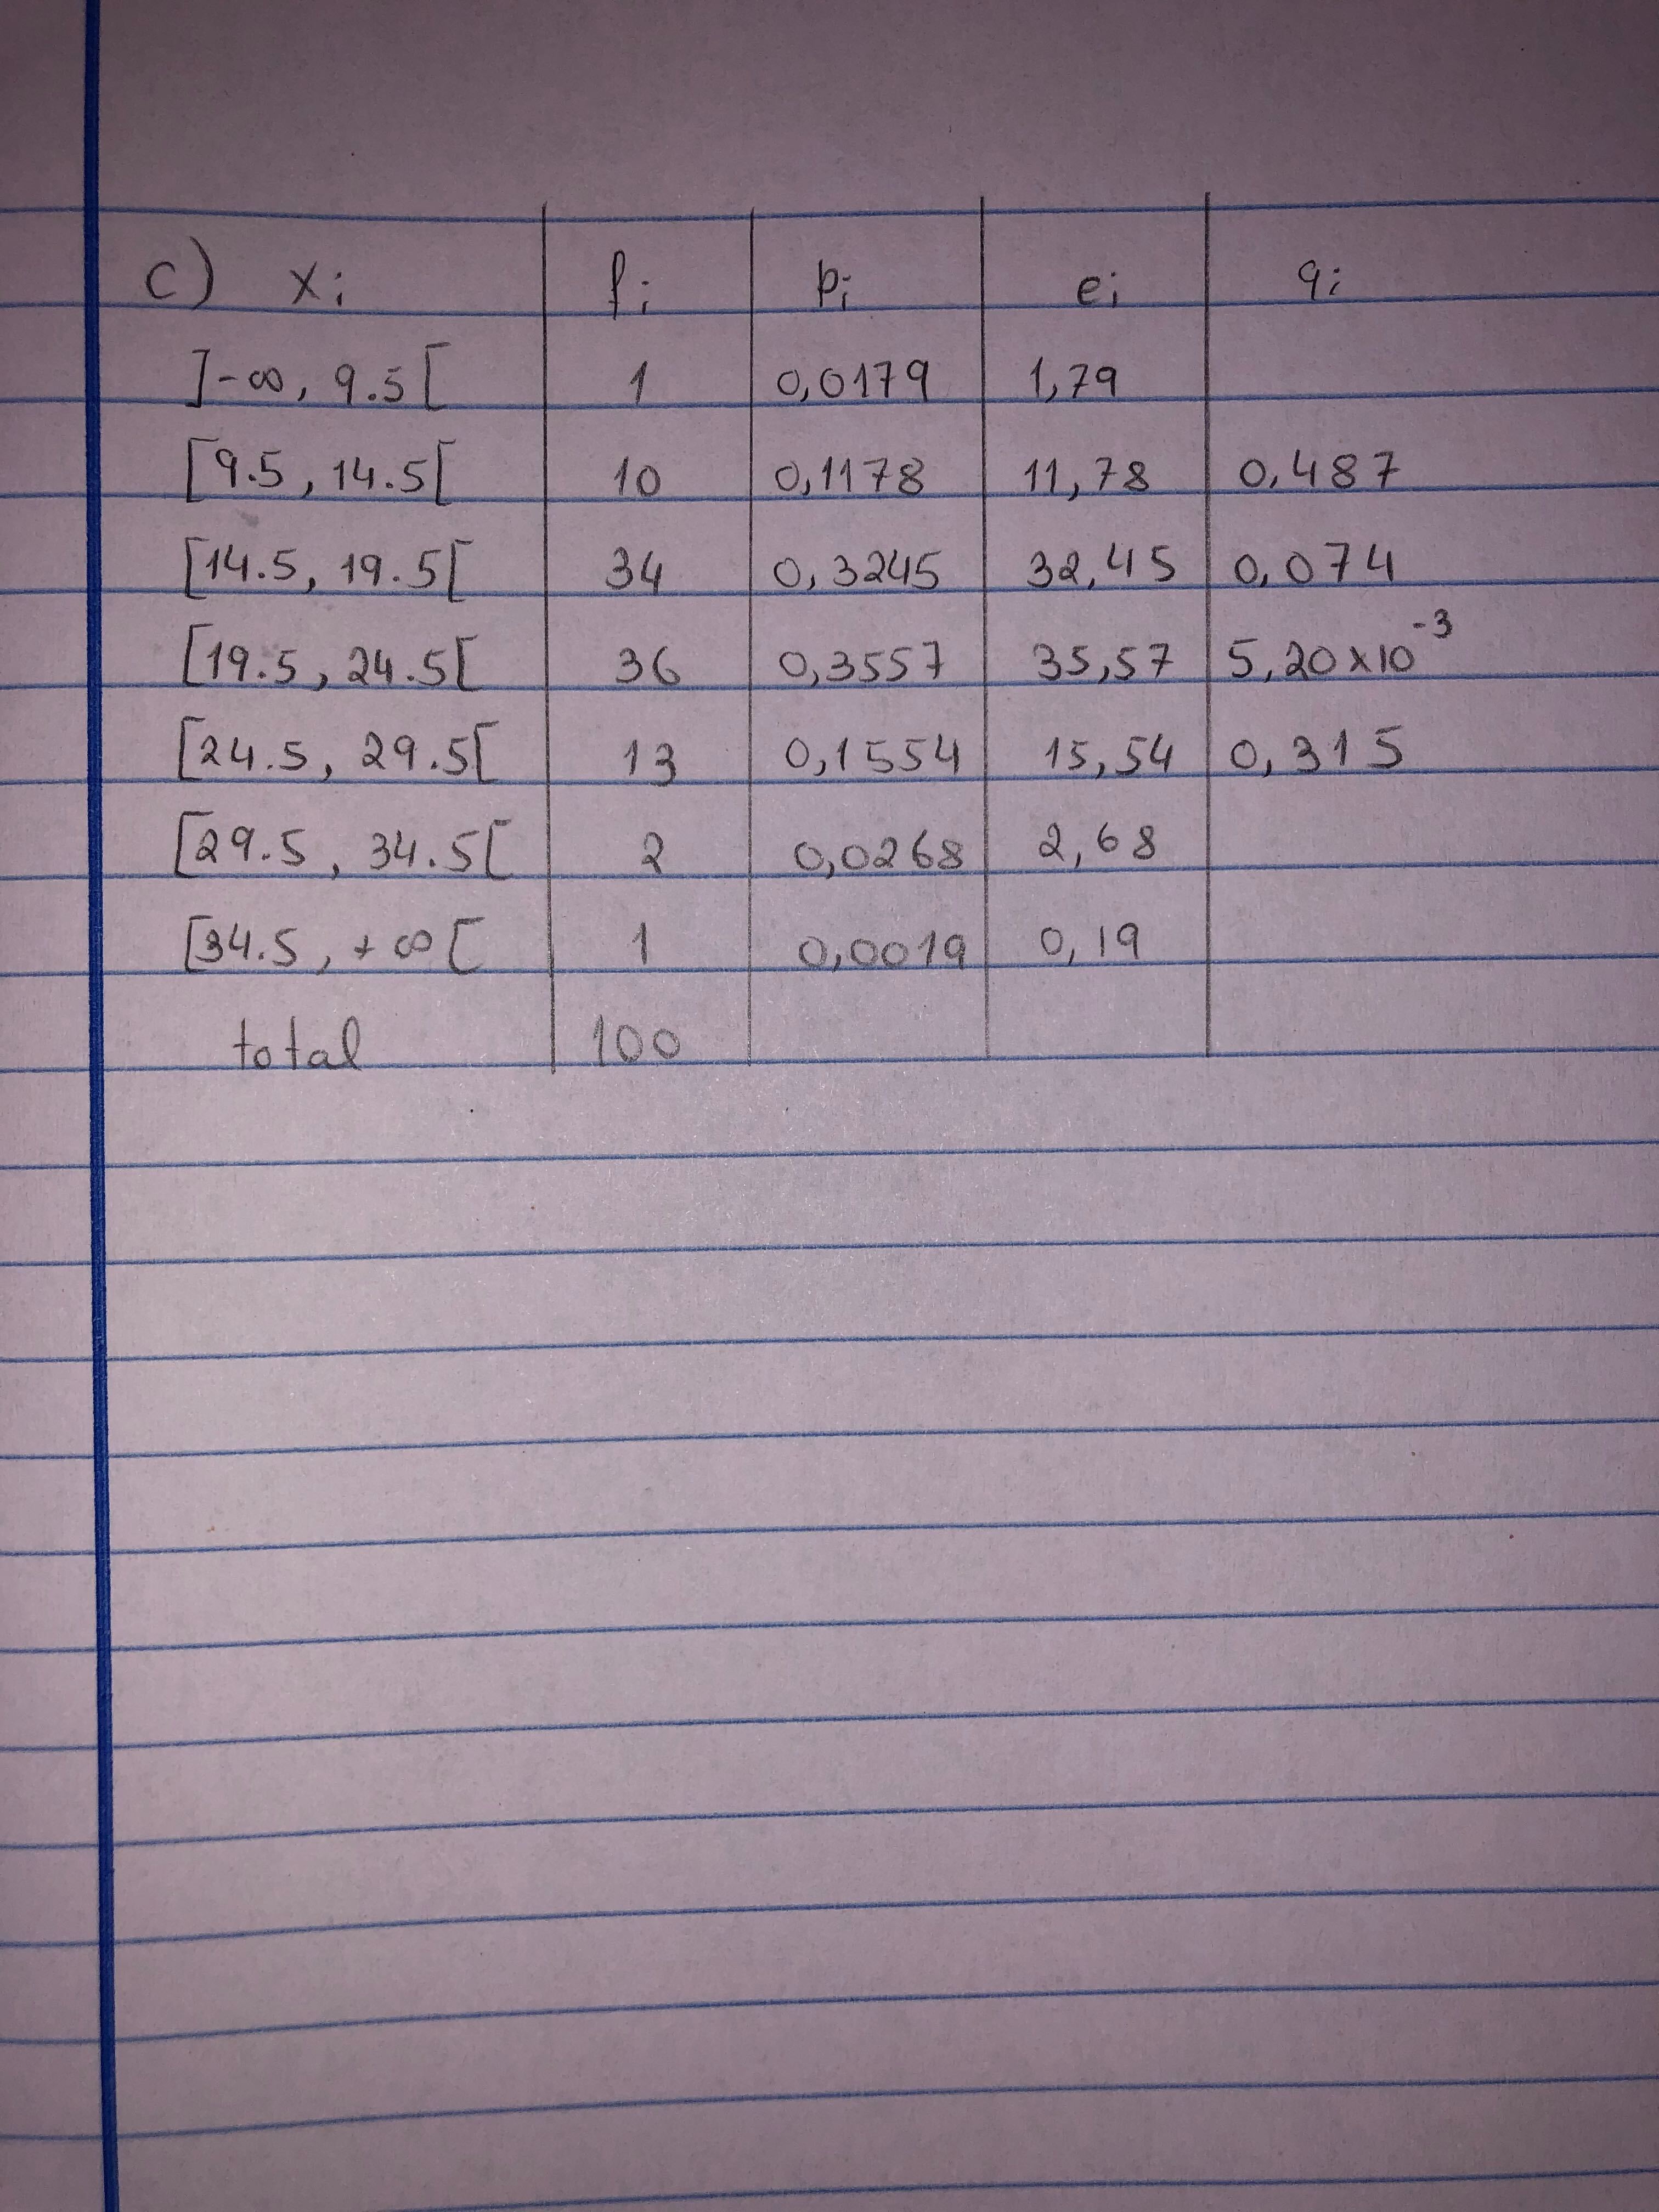 c) xi fi pi ei qi
]-∞, 9.5[ 1 0,0179 1,79
[9.5, 14.5[ 10 0,1178 11,78 0,487
[14.5, 19.5[ 34 0,3245 32,45 0,074
[19.5, 24.5[ 36 0,3557 35,57 5,20x10⁻³
[24.5, 29.5[ 13 0,1554 15,54 0,315
[29.5, 34.5[ 2 0,0268 2,68
[34.5, +∞[ 1 0,0019 0,19
total 100